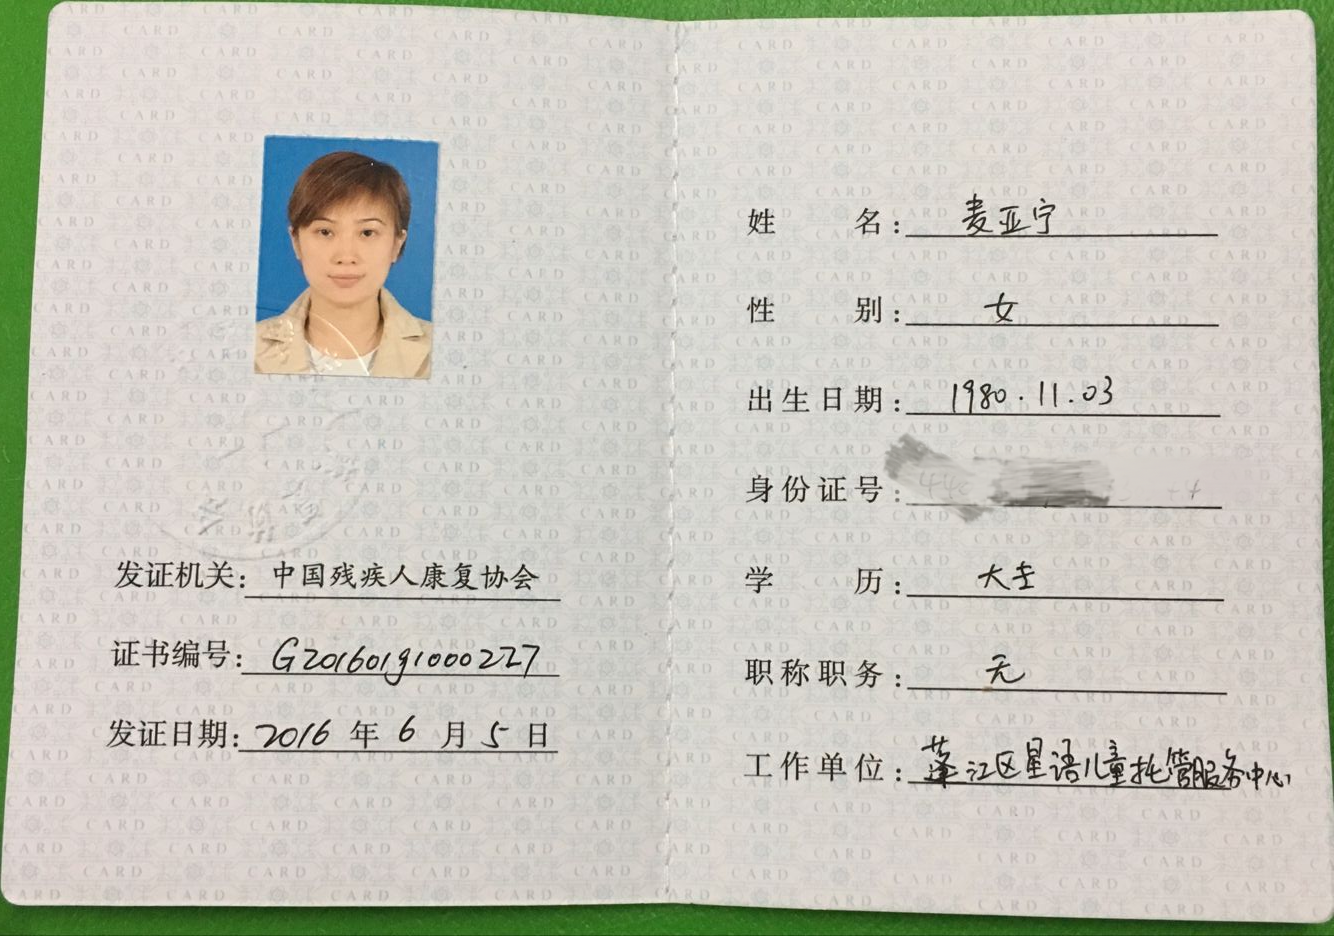 发证机关：中国残疾人康复协会
证书编号：G20160191000227
发证日期：2016 年 6 月 5 日
姓名：麦亚宁
性别：女
出生日期：1980.11.03
身份证号：
学历：大专
职称职务：无
工作单位：蓬江区星语儿童托管服务中心